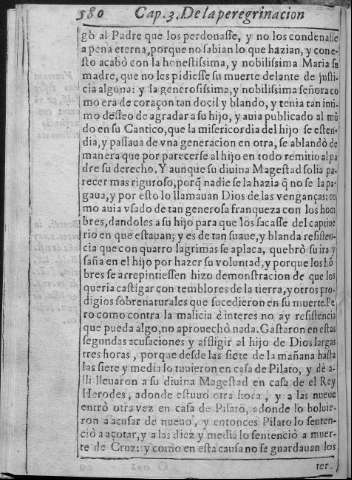 580 Cap. 3. De la peregrinacion
gó al Padre que los perdonasse, y no los condenasse
a pena eterna, porque no sabian lo que hazian, y con e-
sto acabó con la honestissima, y nobilissima Maria su
madre, que no les pidiesse su muerte delante de justi-
cia alguna: y la generosissima, y nobilissima señora co
mo era de coraçon tan docil y blando, y tenia tan inti-
mo desseo de agradar a su hijo, y auia publicado al mũ
do en su Cantico, que la misericordia del hijo se esten-
dia, y passaua de vna generacion en otra, se ablandò de
manera que por parecerse al hijo en todo remitio al pa
dre su derecho. Y aunque su diuina Magestad solia pa-
recer mas riguroso, porq̃ nadie se la hazia q̃ no se la pa-
gaua, y por esto lo llamauan Dios de las venganças: co
mo auia vsado de tan generosa franqueza con los hom
bres, dandoles a su hijo para que los sacasse del captiue
rio en que estauan; y es de tan suaue, y blanda resisten-
cia que con quatro lagrimas se aplaca, quebrò su ira y
saña en el hijo por hazer su voluntad, y porque los hõ-
bres se arrepintiessen hizo demonstracion de que los
queria castigar con temblores de la tierra, y otros pro-
digios sobrenaturales que sucedieron en su muerte. Pe
ro como contra la malicia d'interes no ay resistencia
que pueda algo, no aprouechò nada. Gastaron en estas
segundas acusaciones y afligir al hijo de Dios largas
tres horas, porque desde las siete de la mañana hasta
las siete y media lo tuuieron en casa de Pilato, y de a-
lli lleuaron a su diuina Magestad en casa de el Rey
Herodes, adonde estuuo otra hora, y a las nueue
entrò otra vez en casa de Pilato, adonde lo boluie-
ron a acusar de nueuo, y entonces Pilato lo senten-
ciò a açotar, y a las diez y media lo sentenciò a muer-
te de Cruz: y como en esta causa no se guardauan los
ter-